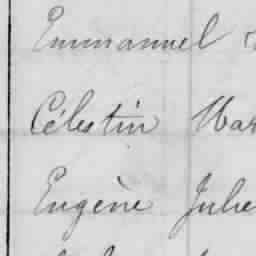 Emmanuel
Célestin Mar
Eugène Julie